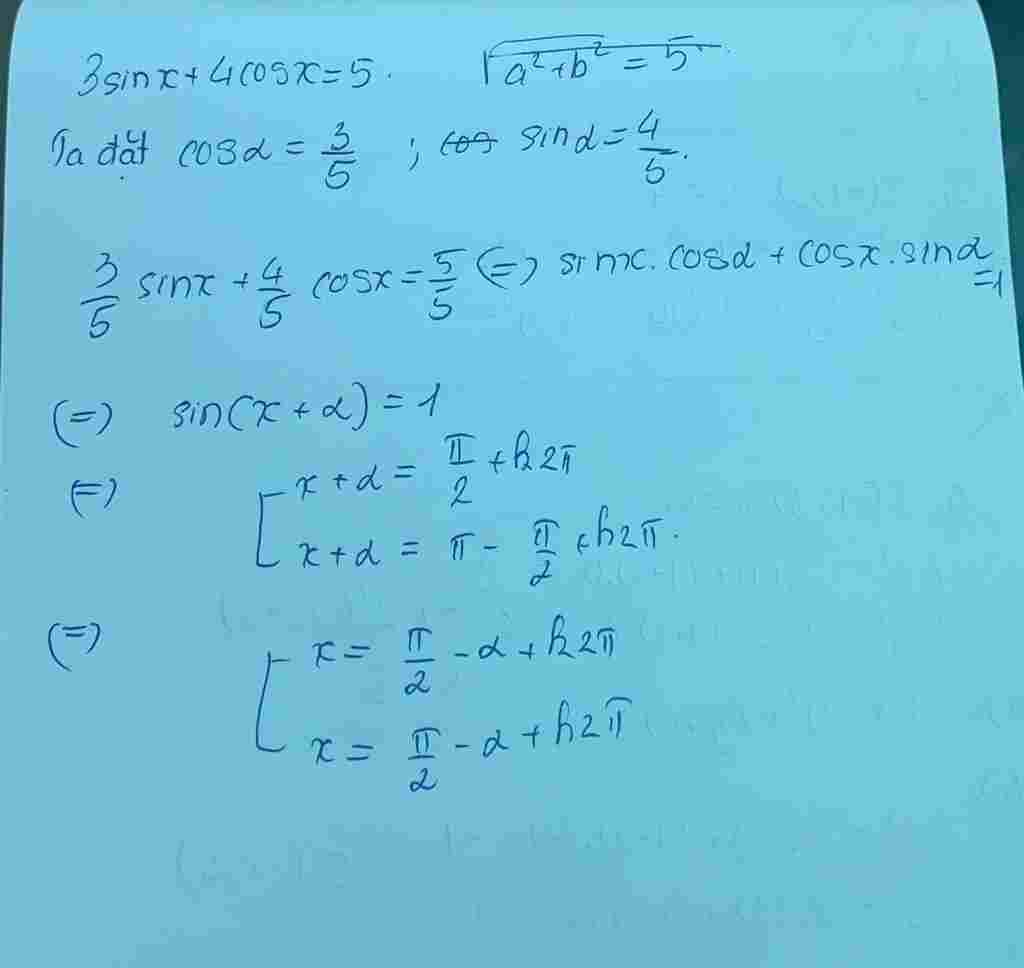 3sinx + 4cosx = 5. √a²+b² = 5
Ta đặt cosα = 3/5 ; cos sinα = 4/5.
3/5 sinx + 4/5 cosx = 5/5 (=) sinx. cosα + cosx. sinα = 1
(=) sin(x + α) = 1
(=) [ x + α = π/2 + k2π
x + α = π - π/2 + k2π.
(=) [ x = π/2 - α + k2π
x = π/2 - α + k2π